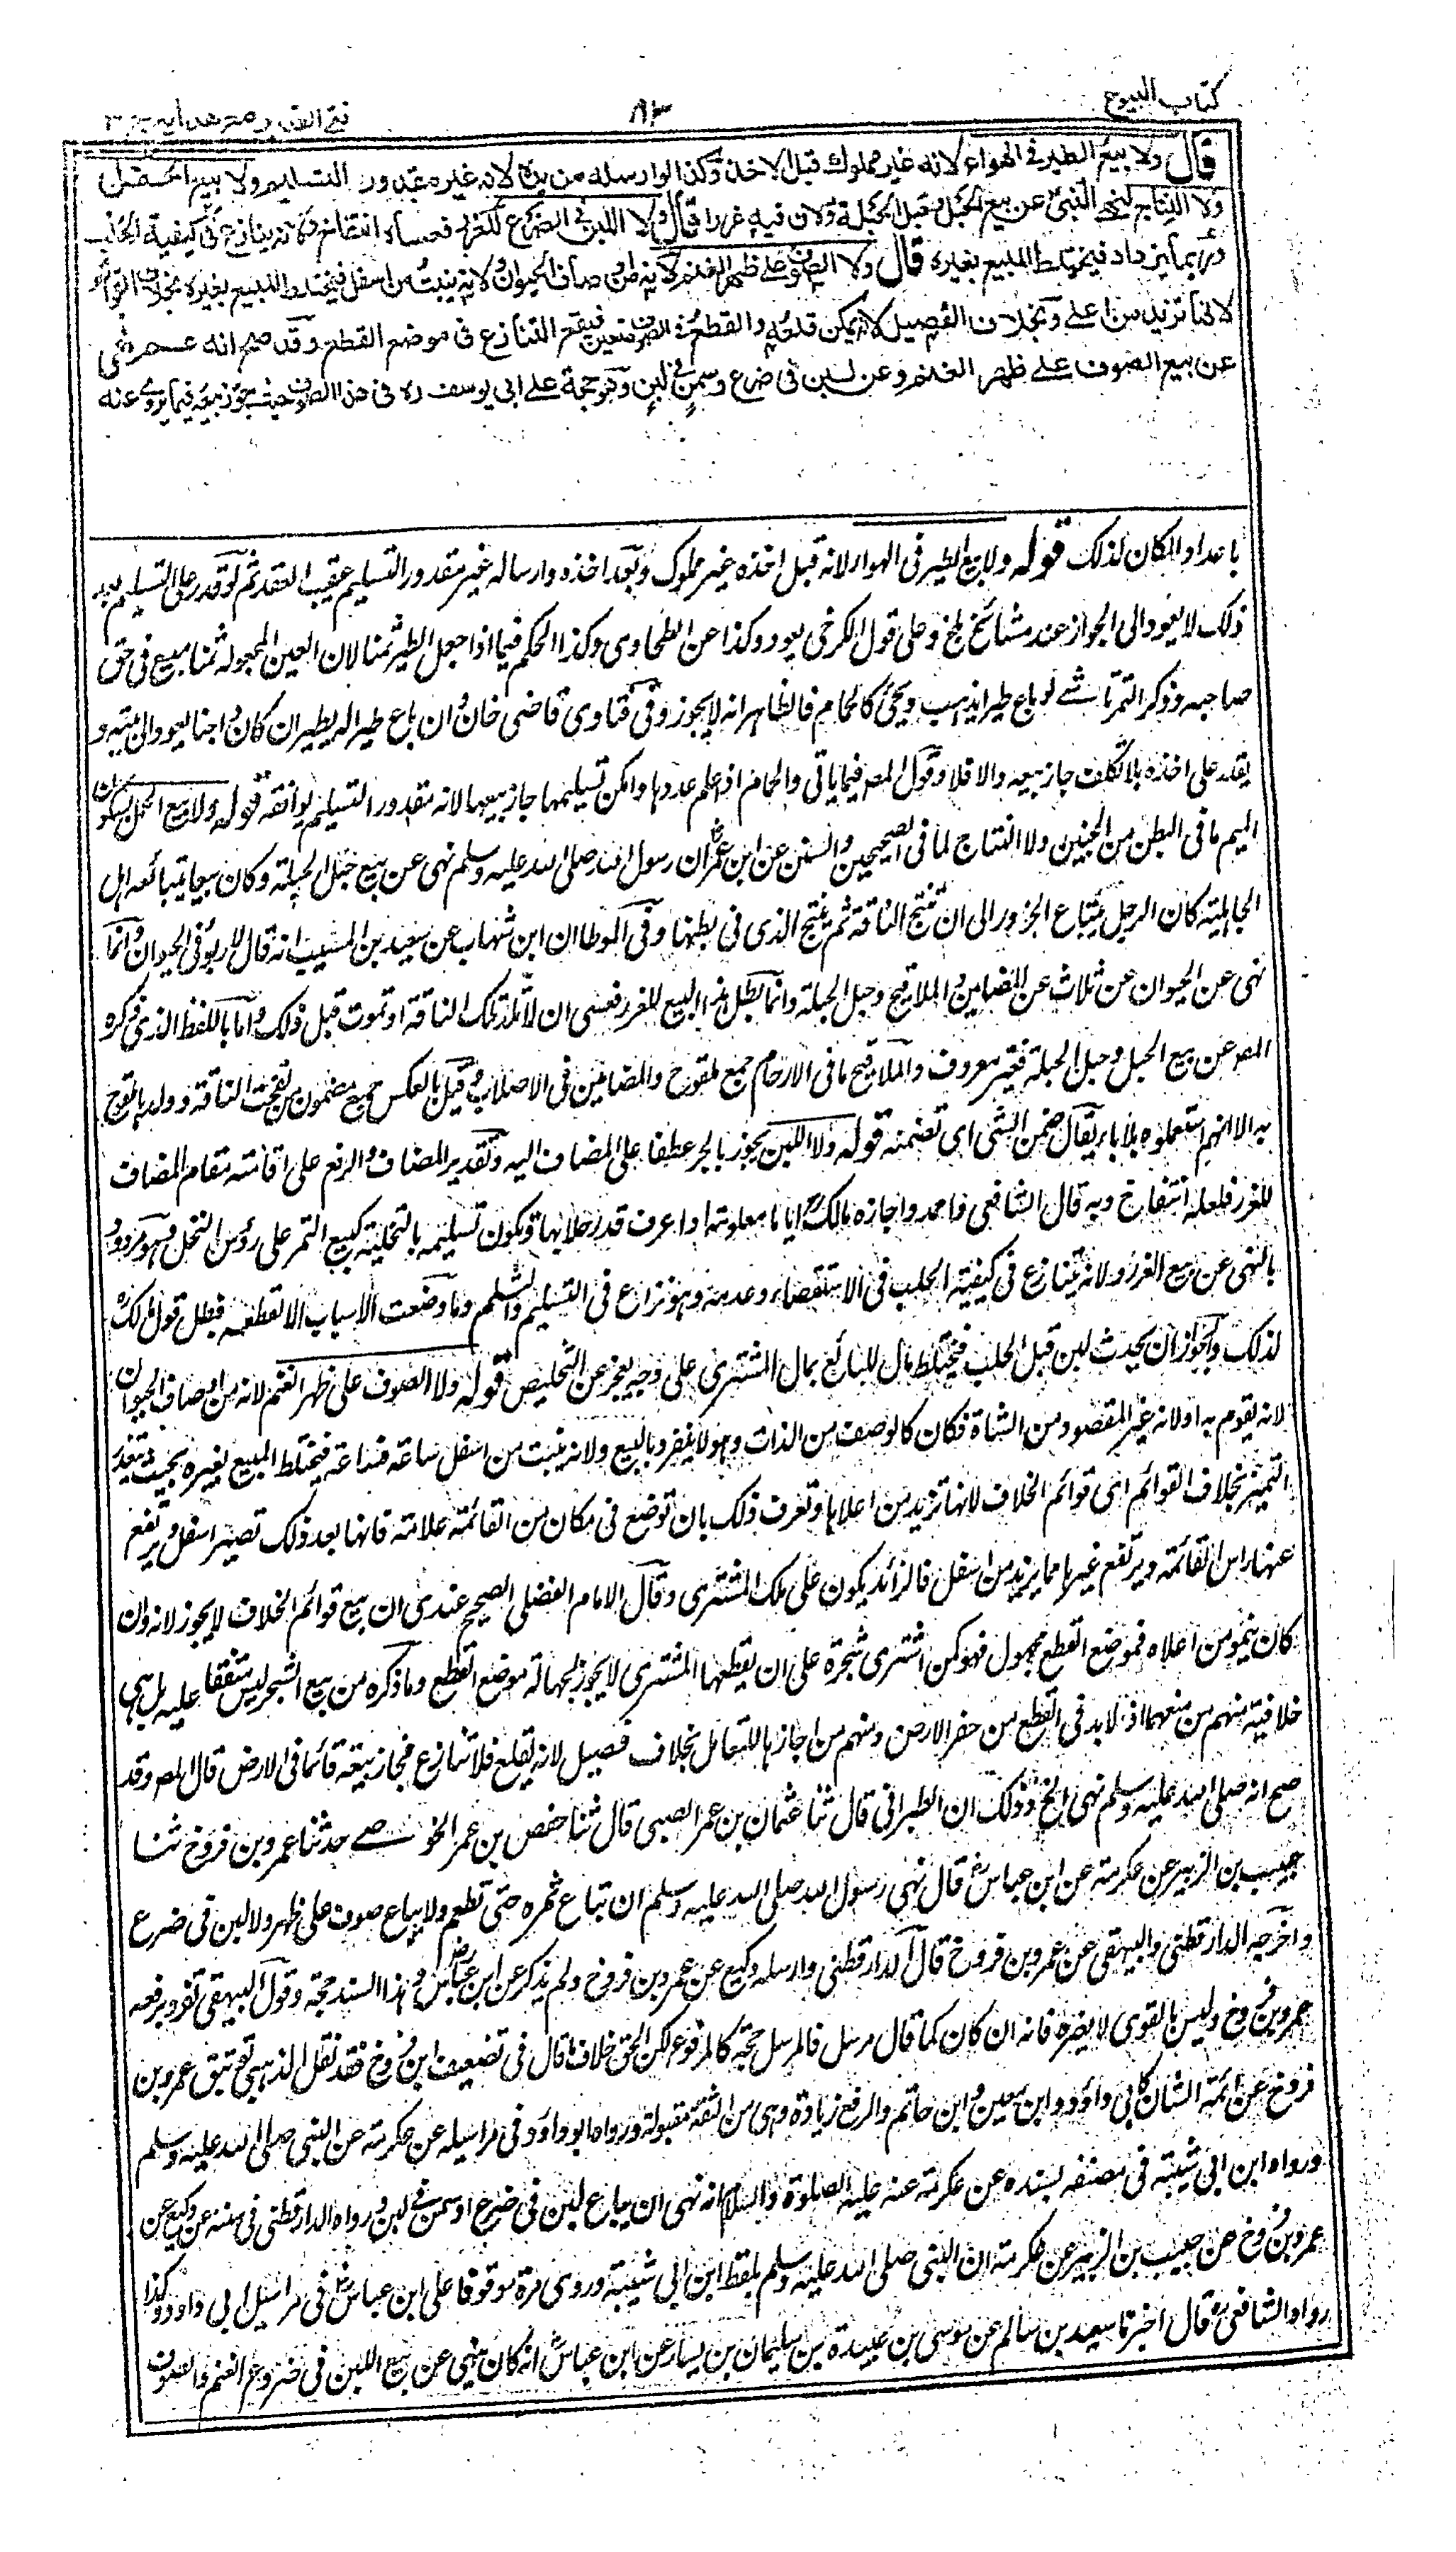 كتاب البيوع
٨٣
فتح القدير مع هدايه ج ٣
قال ولا بيع الطير في الهواء لانه غير مملوك قبل الاخذ وكذا لو ارسله من يده لانه غير مقدور التسليم ولا بيع الحمل
ولا النتاج لنهي النبي عن بيع الحبل وحبل الحبلة ولان فيه غررا قال ولا اللبن في الضرع للغرر فعساه انتفاخ ولانه ينازع في كيفية الحلب
وربما يزداد فيختلط المبيع بغيره قال ولا الصوف على ظهر الغنم لانه من اوصاف الحيوان ولانه ينبت من اسفل فيختلط المبيع بغيره بخلاف القوائم
لانها تزيد من اعلى وبخلاف الفصيل لانه يمكن قلعه والقطع في الصوف متعين فيقع التنازع في موضع القطع وقد صح انه عم نهى
عن بيع الصوف على ظهر الغنم وعن لبن في ضرع وسمن في لبن وهو حجة على ابي يوسف ره في هذا الصوف حيث جوز بيعه فيما يروى عنه
باعداد المكان لذلك قوله ولا بيع الطير في الهواء لانه قبل اخذه غير مملوك وبعد اخذه وارساله غير مقدور التسليم عقيب العقد ثم لو قدر على التسليم بعد
ذلك لا يعود الى الجواز عند مشائخ بلخ وعلى قول الكرخي يعود وكذا عن الطحاوي وكذا الحكم فيما اذا جعل الطير ثمنا لان العين المجعولة ثمنا مبيع في حق
صاحبه وذكر التمرتاشي لو باع طيرا يذهب ويجئ كالحمام فالظاهر انه لا يجوز وفي فتاوى قاضي خان وان باع طيرا له يطير ان كان داجنا يعود الى بيته و
يقدر على اخذه بلا تكلف جاز بيعه والا فلا وقول المصر فيما ياتي والحمام اذا علم عددها وامكن تسليمها جاز بيعها لانه مقدور التسليم يوافقه قوله ولا بيع الحمل بسكون
الميم ما في البطن من الجنين ولا النتاج لما في الصحيحين والسنن عن ابن عمر رض ان رسول الله صلى الله عليه وسلم نهى عن بيع حبل الحبلة وكان بيعا يتبايعه اهل
الجاهلية كان الرجل يبتاع الجزور الى ان تنتج الناقة ثم ينتج الذي في بطنها وفي الموطا ان ابن شهاب عن سعيد بن المسيب انه قال لا ربو في الحيوان وانما
نهى عن الحيوان عن ثلاث عن المضامين والملاقيح وحبل الحبلة وانما بطل هذا البيع للغرر فعسى ان لا تلد تلك الناقة او تموت قبل ذلك واما باللفظ الذي ذكره
المصر عن بيع الحبل وحبل الحبلة فغير معروف والملاقيح ما في الارحام جمع ملقوح والمضامين في الاصلاب وقيل بالعكس جمع مضمون من لقحت الناقة وولدها ملقوح
به الا انهم استعملوه بلا باء يقال ضمن الشئ اي تضمنه قوله ولا اللبن يجوز بالجر عطفا على المضاف اليه وتقدير المضاف والرفع على اقامته مقام المضاف
للغرر فلعله انتفاخ وبه قال الشافعي واحمد واجازه مالك اياما معلومة اذا عرف قدر حلابها وتكون تسليمه بالتخلية كبيع الثمر على رؤس النخل وهو مردود
بالنهي عن بيع الغرر ولانه يتنازع في كيفية الحلب في الاستقصاء وعدمه وهو نزاع في التسليم والتسلم وما وضعت الاسباب الا لقطعه فبطل قول مالك ره
لذلك ولجواز ان يحدث لبن قبل الحلب فيختلط مال للبائع بمال المشتري على وجه يعجز عن التخليص قوله ولا الصوف على ظهر الغنم لانه من اوصاف الحيوان
لانه يقوم به او لانه غير المقصود من الشاة فكان كالوصف من الذات وهو لا يفرد بالبيع ولانه ينبت من اسفل ساعة فساعة فيختلط المبيع بغيره بحيث يتعذر
التميز بخلاف القوائم اي قوائم الخلاف لانها تزيد من اعلاها وتعرف ذلك بان توضع في مكان من القائمة علامة فانها بعد ذلك تصير اسفل ويرتفع
عنها راس القائمة ويرتفع غيرها مما يزيد من اسفل فالزائد يكون على ملك المشتري وقال الامام الفضلي الصحيح عندي ان بيع قوائم الخلاف لا يجوز لانه وان
كان ينمو من اعلاه فموضع القطع مجهول فهو كمن اشترى شجرة على ان يقطعها المشتري لا يجوز لجهالة موضع القطع وما ذكره من بيع الشجر ليس متفقا عليه بل هي
خلافية منهم من منعها اذ لا بد في القطع من حفر الارض ومنهم من اجازها للتعامل بخلاف فصيل لانه يقلع فلا تنازع فجاز بيعه قائما في الارض قال المصر وقد
صح انه صلى الله عليه وسلم نهى الخ وذلك ان الطبراني قال ثنا عثمان بن عمر الضبي قال ثنا حفص بن عمر الحوضي حدثنا عمر وبن فروخ ثنا
حبيب بن الزبير عن عكرمة عن ابن عباس رض قال نهى رسول الله صلى الله عليه وسلم ان تباع ثمره حتى تطعم ولا يباع صوف على ظهر ولا لبن في ضرع
واخرجه الدارقطني والبيهقي عن عمر وبن فروخ قال الدارقطني وارسله وكيع عن عمر وبن فروخ ولم يذكر عن ابن عباس رض وهذا السند حجة وقول البيهقي تفرد برفعه
عمر وبن فروخ وليس بالقوي لا يضره فانه ان كان كما قال مرسل فالمرسل حجة كالمرفوع لكن الحق خلاف ما قال في تضعيف ابن فروخ فقد نقل الذهبي توثيق عمر وبن
فروخ عن ائمة الشان كابي داؤد وابن معين وابن حاتم والرفع زيادة وهي من الثقة مقبولة ورواه ابو داؤد في مراسيله عن عكرمة عن النبي صلى الله عليه وسلم
ورواه ابن ابي شيبة في مصنفه بسنده عن عكرمة عنه عليه الصلوة والسلام انه نهى ان يباع لبن في ضرع او سمن في لبن ورواه الدارقطني في سننه عن وكيع عن
عمر وبن فروخ عن حبيب بن الزبير عن عكرمة ان النبي صلى الله عليه وسلم بلفظ ابن ابي شيبة وروي مرة موقوفا على ابن عباس رض في مراسيل ابي داود وكذا
رواه الشافعي ره قال اخبرنا سعيد بن سالم عن موسى بن عبيدة بن سليمان بن يسار عن ابن عباس رض انه كان ينهى عن بيع اللبن في ضروع الغنم والصوف